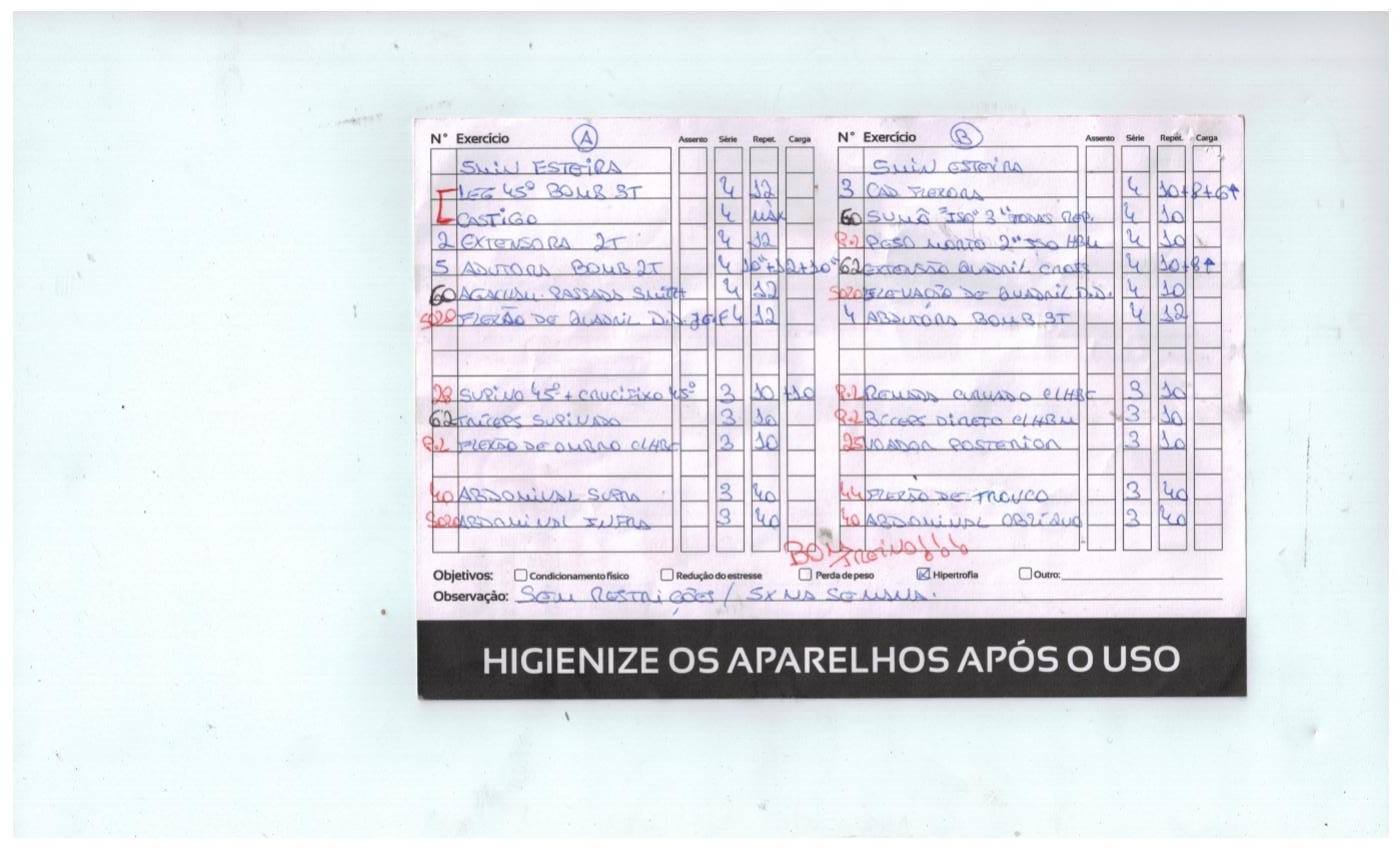 N° Exercício A Assento Série Repet. Carga
5MIN ESTEIRA
LEG 45° BOMB 3T 4 12
CASTIGO 4 MÁX
2 EXTENSORA 2T 4 12
5 ADUTORA BOMB 2T 4 10"+12+10"
60 AGACHAM. PASSADA SMITH 4 12
SOLO FLEXÃO DE QUADRIL D.D. 4 12
28 SUPINO 45° + CRUCIFIXO 45° 3 10 +10
62 TRÍCEPS SUPINADO 3 10
P.L FLEXÃO DE OMBRO C/HBC 3 10
40 ABDOMINAL SUPRA 3 40
SOLO ABDOMINAL INFRA 3 40
N° Exercício B Assento Série Repet. Carga
5MIN ESTEIRA
3 CAD FLEXORA 4 10+8+6↑
60 SUMÔ ISO 3" TODAS REP. 4 10
P.L PESO MORTO 2" ISO HBM 4 10
62 EXTENSÃO QUADRIL CROSS 4 10+8↑
SOLO ELEVAÇÃO DE QUADRIL D.D. 4 10
4 ABDUTORA BOMB 3T 4 12
P.L REMADA CURVADO C/HBC 3 10
P.L BÍCEPS DIRETO C/HBM 3 10
25 VOADOR POSTERIOR 3 10
44 FLEXÃO DE TRONCO 3 40
40 ABDOMINAL OBLÍQUO 3 40
BOM TREINO!!!
Objetivos: Condicionamento físico Redução do estresse Perda de peso Hipertrofia Outro:
Observação: SEM RESTRIÇÕES / 5X NA SEMANA.
HIGIENIZE OS APARELHOS APÓS O USO